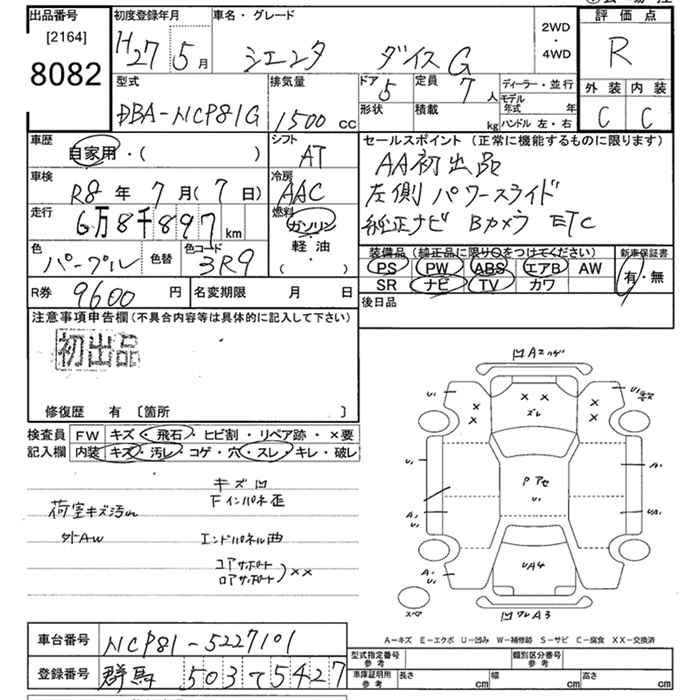 出品番号
[2164]
8082
初度登録年月 車名・グレード
H27 5月 シエンタ ダイス G
2WD
・
4WD
評価点
R
外装 内装
C C
型式 排気量 ドア 5 定員 7人 ディーラー・並行
DBA-NCP81G 1500 cc 形状 積載 kg モデル年式 年
ハンドル 左・右
車歴 シフト セールスポイント (正常に機能するものに限ります)
自家用・( ) AT AA初出品
車検 冷房 左側パワースライド
R8年 7月(7日) AAC
走行 燃料 純正ナビ Bカメラ ETC
6万8千897km ガソリン
軽油
・
( )
色 色替 色コード
パープル 3R9
装備品 (純正品に限り○をつけてください) 新車保証書
PS PW ABS エアB AW 有・無
SR ナビ TV カワ
R券 9600円 名変期限 月 日
後日品
注意事項申告欄 (不具合内容等は具体的に記入して下さい)
初出品
修復歴 有 〔箇所 〕
検査員 FW キズ・飛石・ヒビ割・リペア跡・×要
記入欄 内装 キズ・汚レ・コゲ・穴・スレ・キレ・破レ
キズ凹
Fインパネ歪
荷室キズ汚れ
外AW エンドパネル曲
コアサポート
ロアサポート ××
凹A2ハゲ
U1
U1
× ×
× ×
× ×
ズレ
U1
A1
PアセU1
A1
U1
UA1
A1
U1
UA4
凹ワレA3
スペア
A-キズ E-エクボ U-凹み W-補修跡 S-サビ C-腐食 XX-交換済
車台番号 NCP81-5227101
登録番号 群馬 503 て 5427
型式指定番号 参考 類別区分番号 参考
車庫証明用 参考 長さ cm 幅 cm 高さ cm